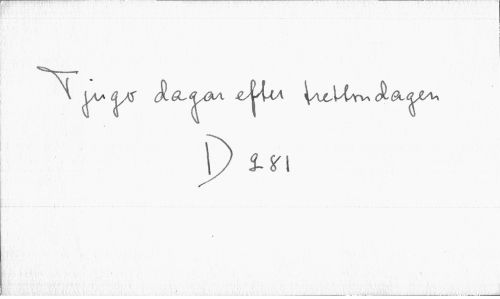 Tjugo dagar efter trettondagen
D 281